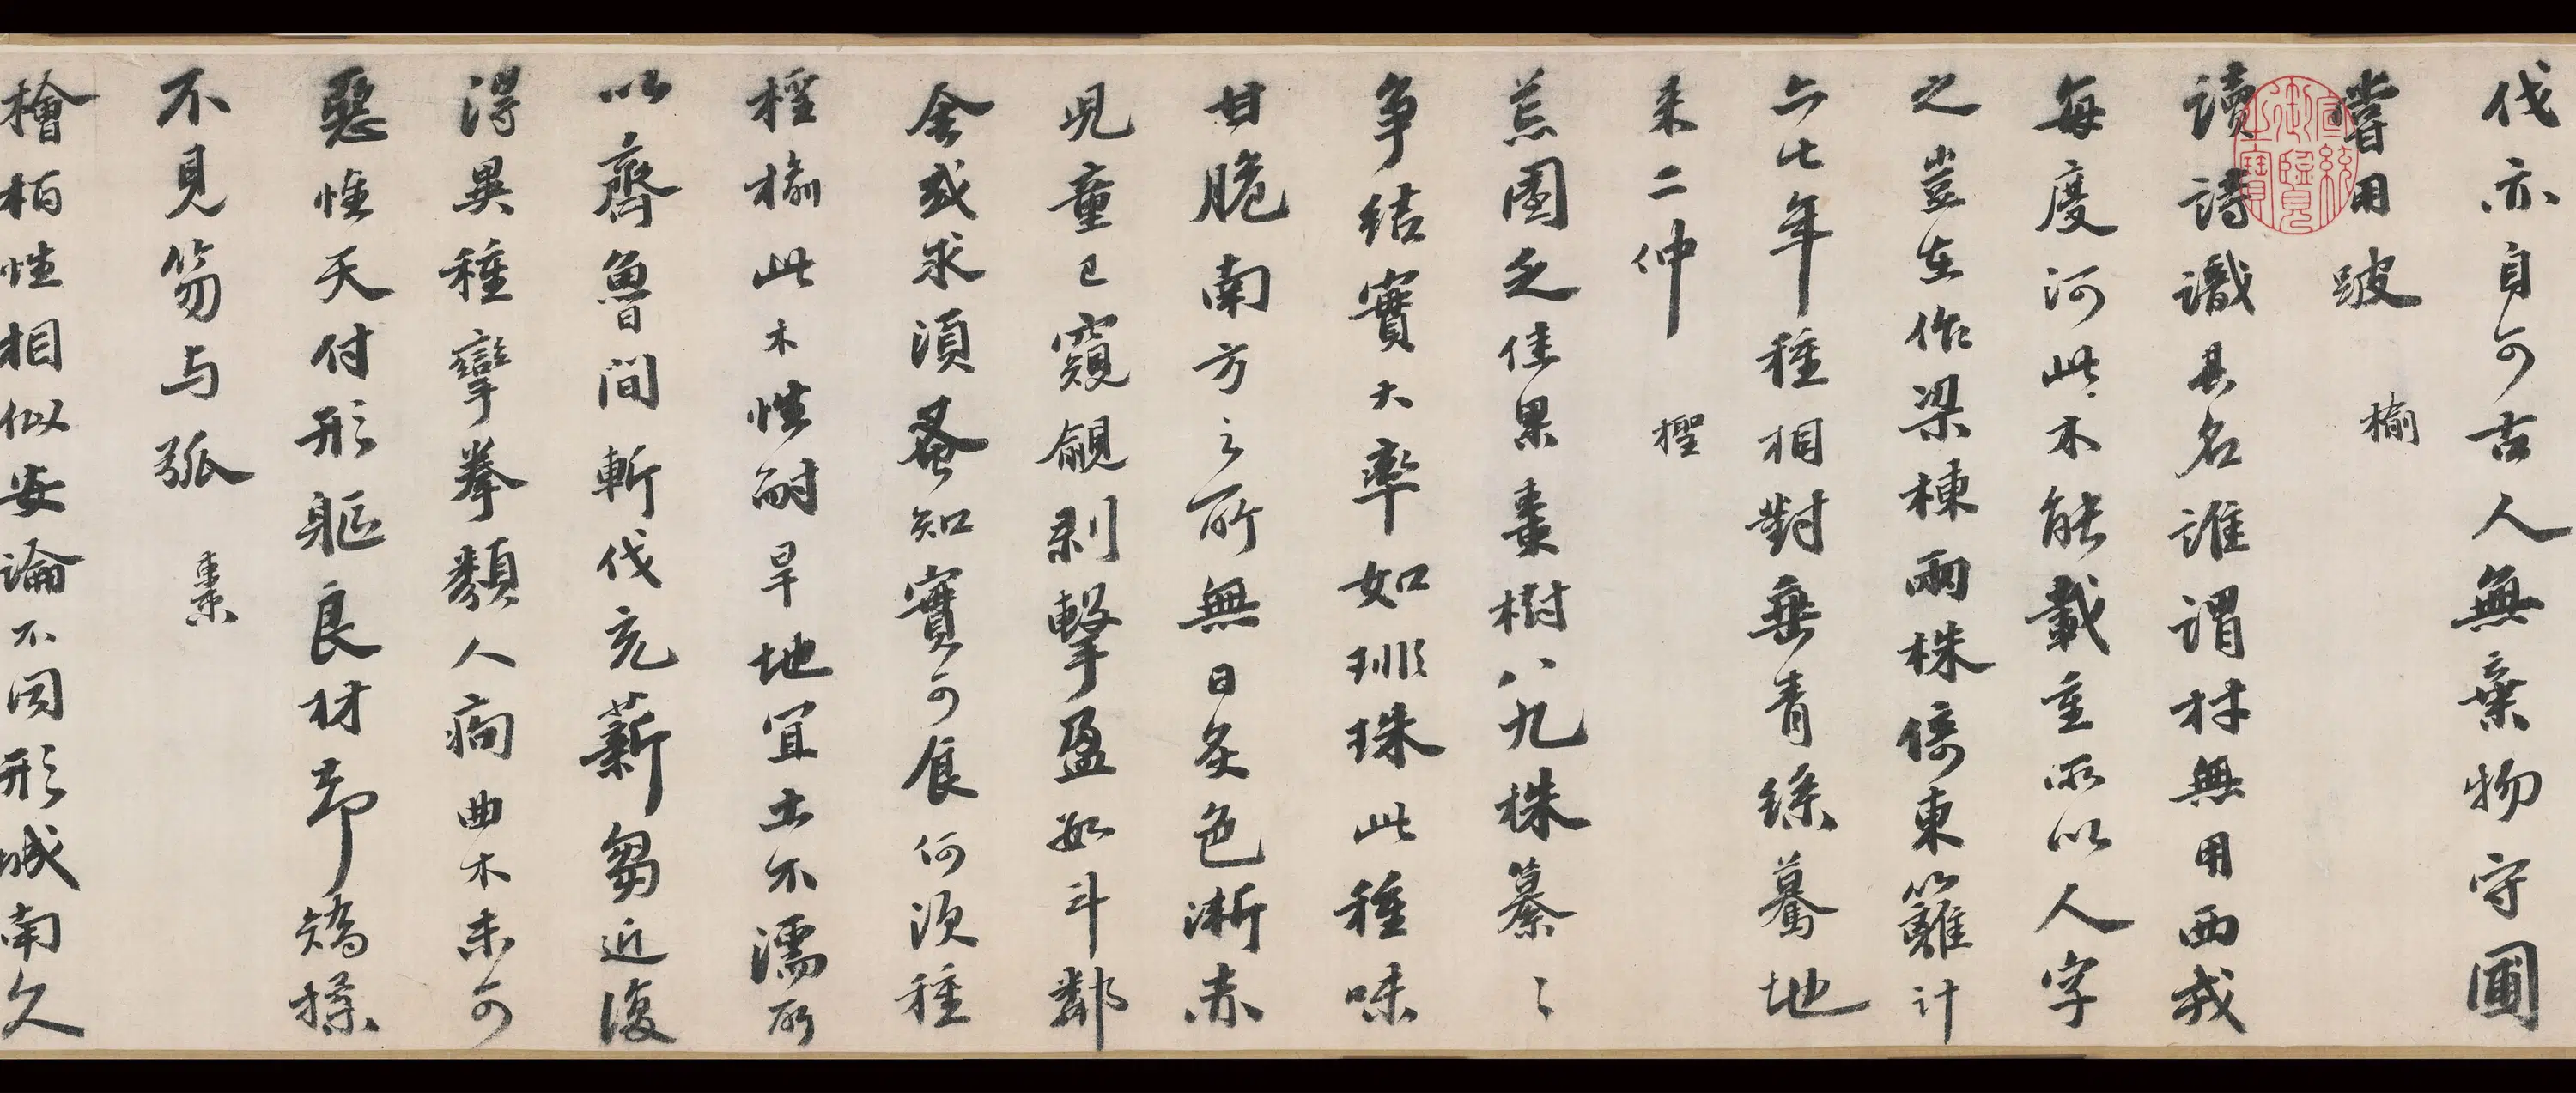 伐亦自可古人無棄物守圃
嘗用跛 榆
讀詩識其名誰謂材無用西戎
每度河此木能載重所以人字
之豈在作梁棟兩株倚東籬計
六七年種相對垂青絲驀地
来二仲 檉
荒園乏佳果棗樹八九株纂〻
争結實大率如琲珠此種味
甘脆南方之所無日炙色漸赤
児童已窺覦剥擊盈數斗鄰
舍或求須蚤知實可食何須種
檉榆此木性耐旱地宜土不濡所
以齊魯間斬伐充薪芻近復
得異種攣拳類人痀曲木未可
惡惟天付形軀良材却矯揉
不見笏与弧 棗
檜栢性相似安論不同形城南久
宣統御覽之寶